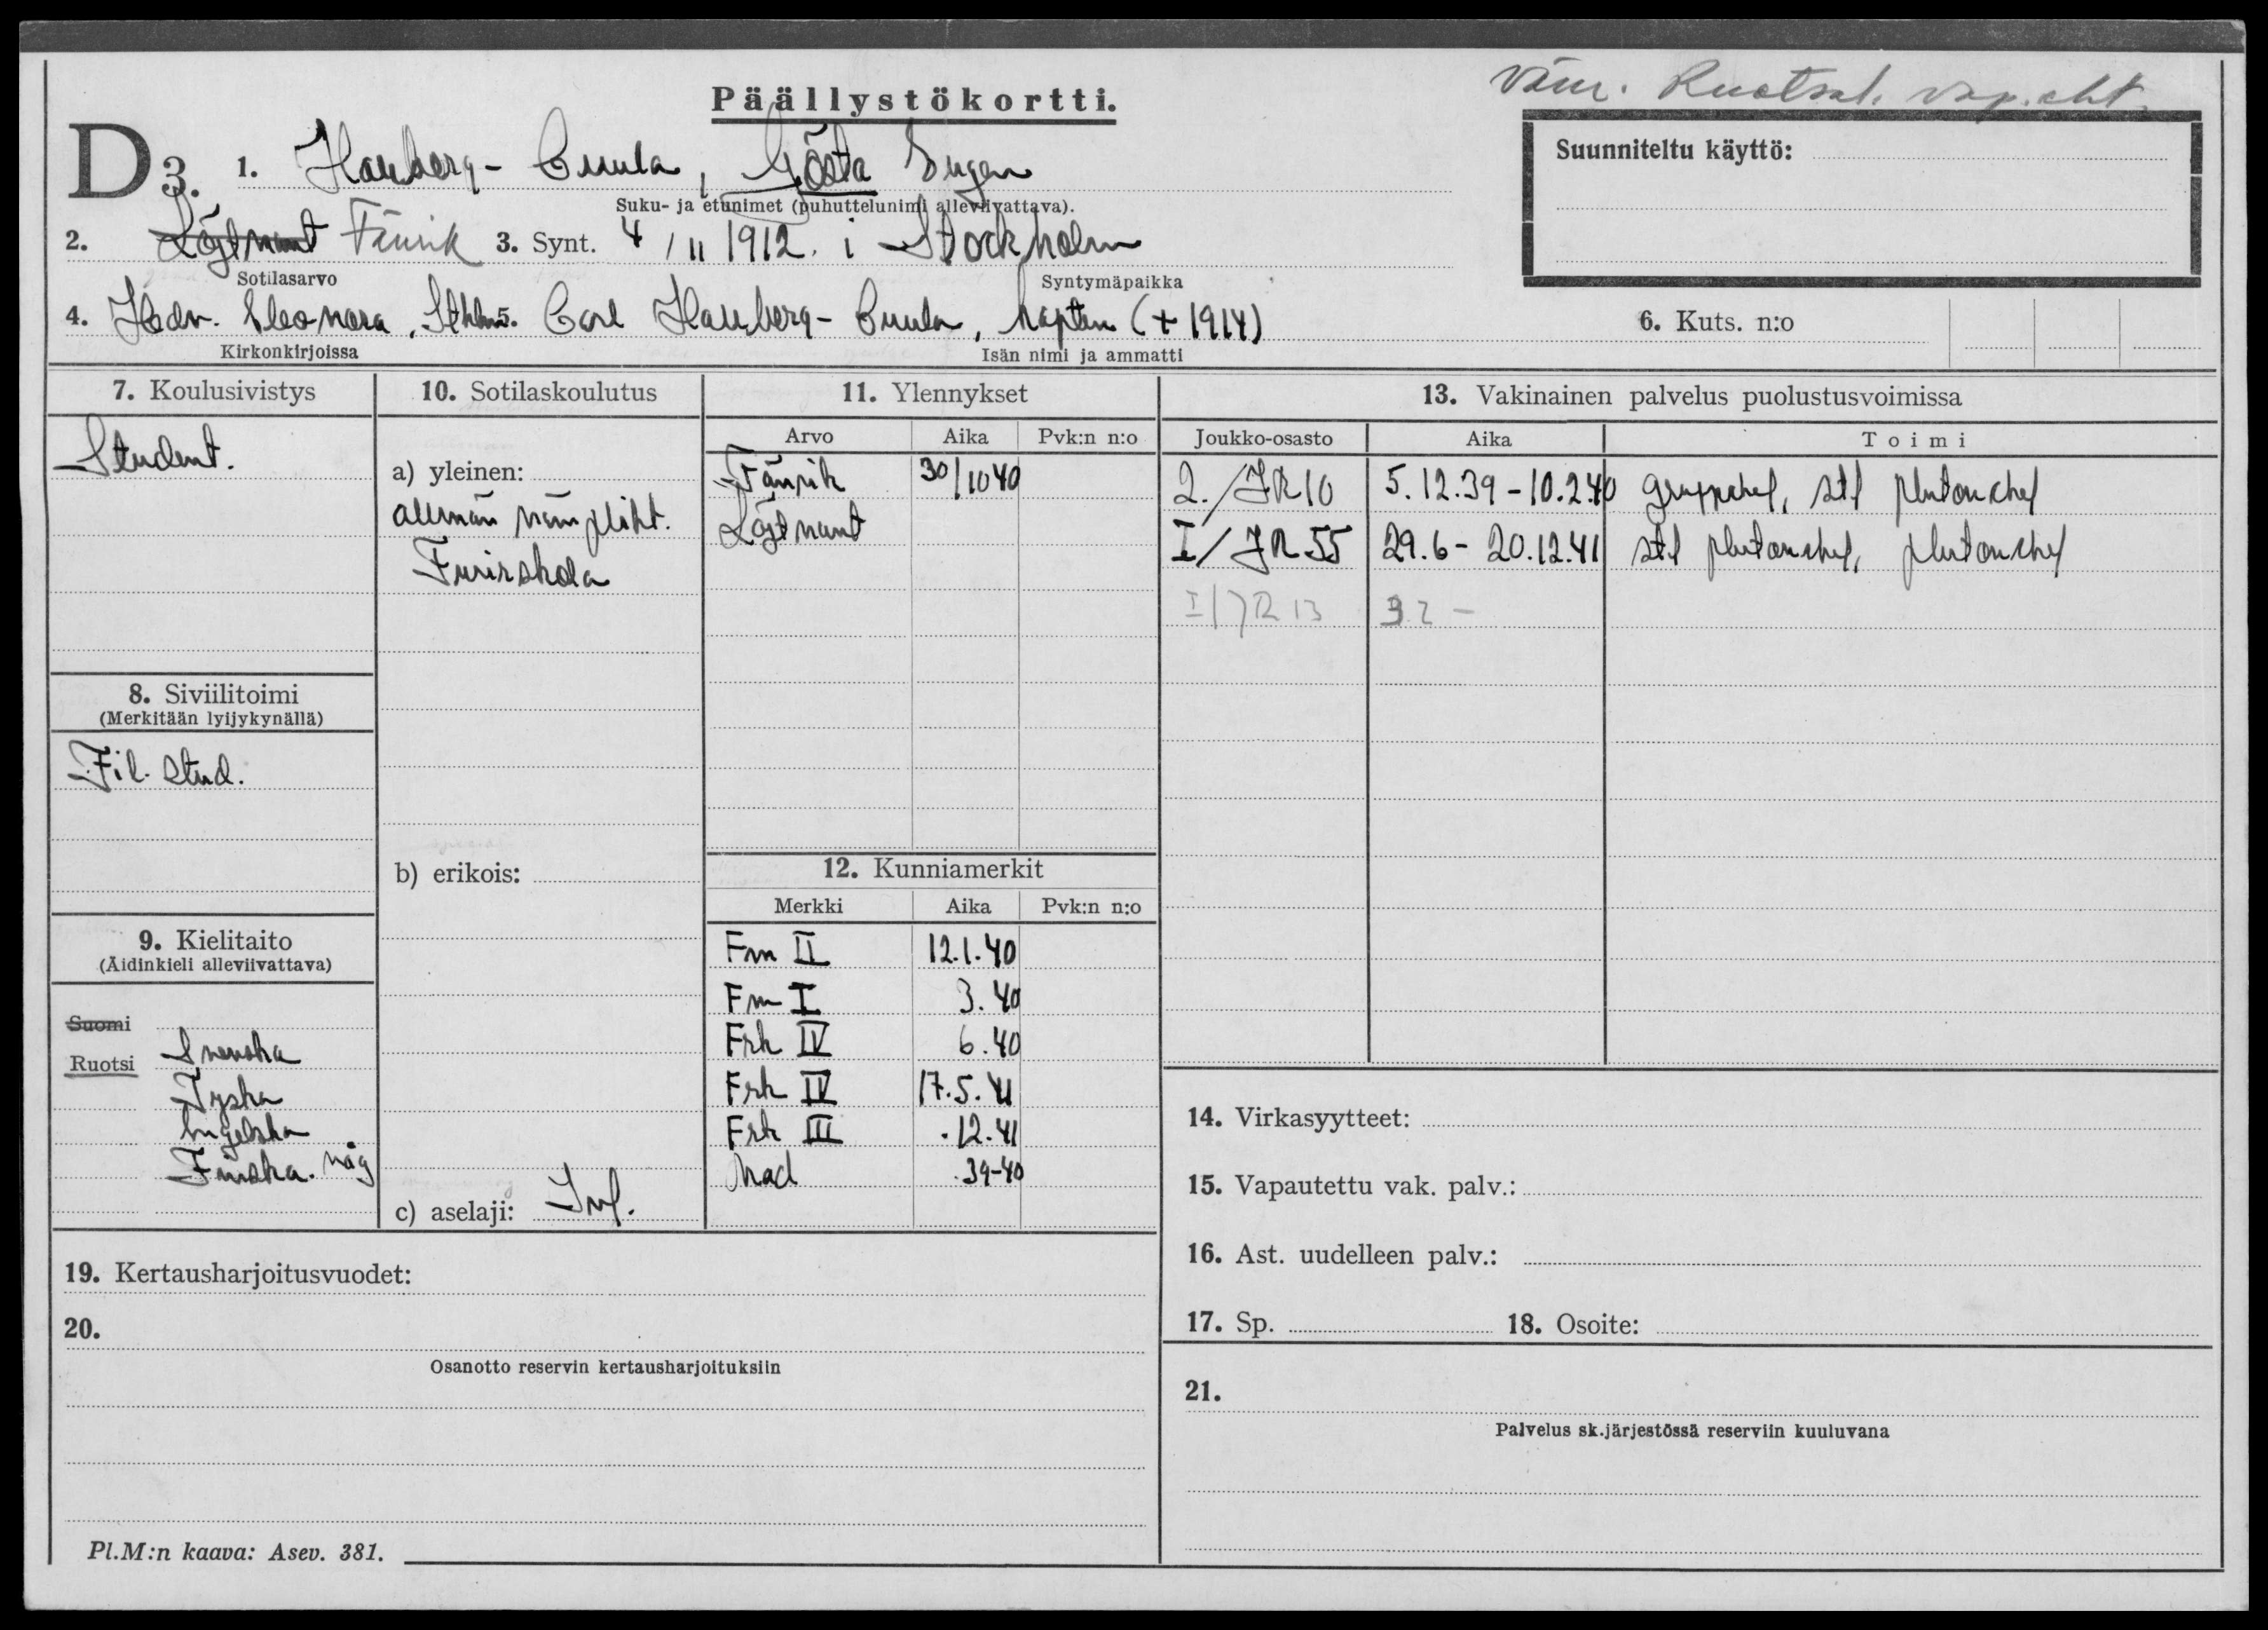 vänr. Ruotsal. vap.eht.
Päällystökortti.
D 3.
1. Hallberg-Cuula, Gösta Eugen
Suku- ja etunimet (puhuttelunimi alleviivattava).
Suunniteltu käyttö:
2. Löjtnant Fänrik 3. Synt. 4/11 1912. i Stockholm
Sotilasarvo Syntymäpaikka
4. Hedv. Eleonora, Sthlm 5. Carl Hallberg-Cuula, kapten (+1914)
Kirkonkirjoissa Isän nimi ja ammatti
6. Kuts. n:o
7. Koulusivistys
Student.
8. Siviilitoimi
(Merkitään lyijykynällä)
Fil. stud.
9. Kielitaito
(Äidinkieli alleviivattava)
Suomi
Ruotsi Svenska
Tyska
Engelska
Finska. någ
10. Sotilaskoulutus
a) yleinen:
allmän värnplikt.
Furirskola
b) erikois:
c) aselaji: Inf.
11. Ylennykset
Arvo Aika Pvk:n n:o
Fänrik 30/10 40
Löjtnant
12. Kunniamerkit
Merkki Aika Pvk:n n:o
Fm II 12.1.40
Fm I 3.40
Frk IV 6.40
Frk IV 17.5.41
Frk III .12.41
Mad .39-40
13. Vakinainen palvelus puolustusvoimissa
Joukko-osasto Aika Toimi
2./JR 10 5.12.39-10.2.40 gruppchef, stf plutonchef
I/JR 55 29.6-20.12.41 stf plutonchef, plutonchef
I/JR 13
14. Virkasyytteet:
15. Vapautettu vak. palv.:
16. Ast. uudelleen palv.:
17. Sp. 18. Osoite:
19. Kertausharjoitusvuodet:
20.
Osanotto reservin kertausharjoituksiin
21.
Palvelus sk.järjestössä reserviin kuuluvana
Pl.M:n kaava: Asev. 381.